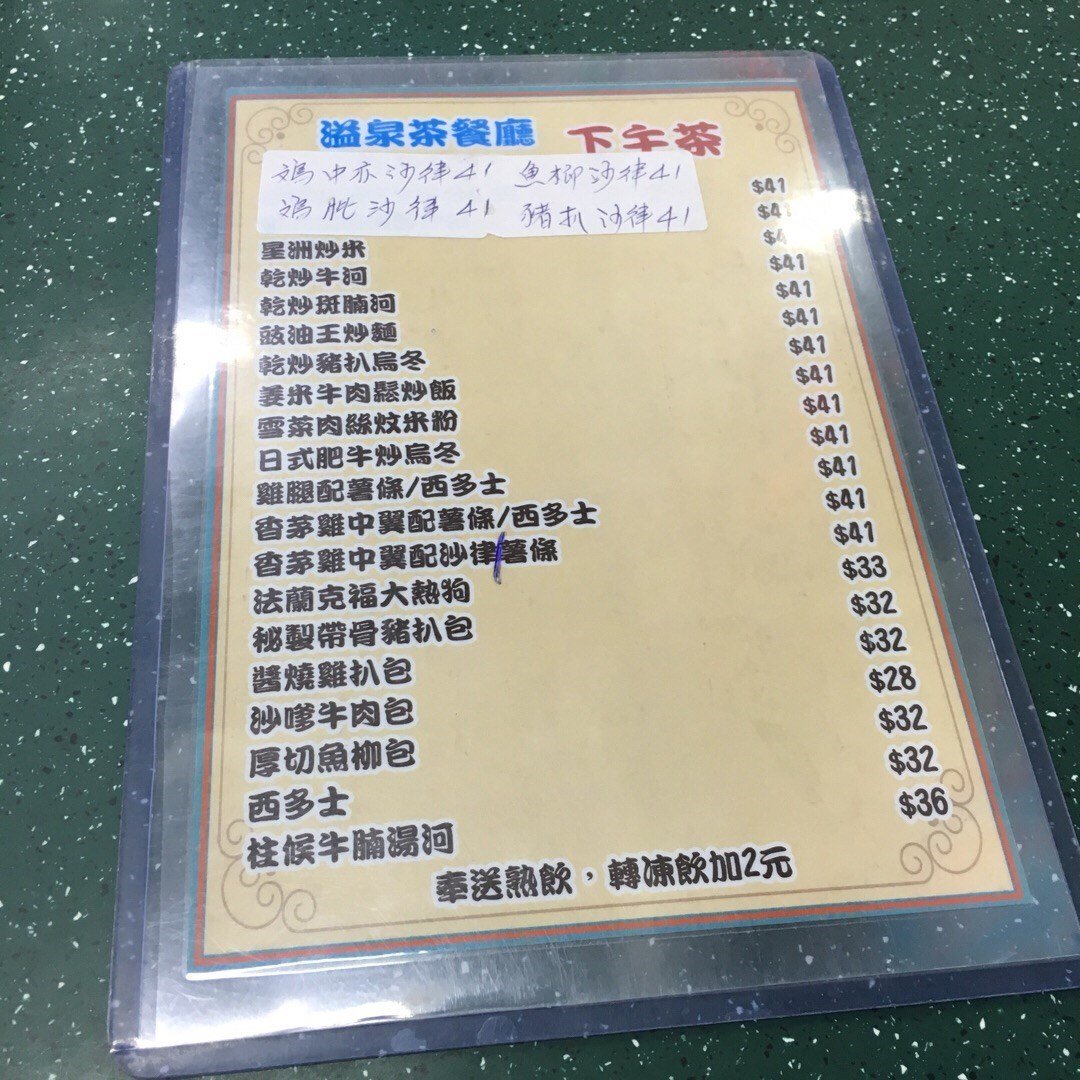 溢泉茶餐廳 下午茶
鸡中亦沙律41 魚柳沙律41
鸡肶沙律 41 豬扒沙律41
$41
$41
星洲炒米 $4
乾炒牛河 $41
乾炒斑腩河 $41
豉油王炒麵 $41
乾炒豬扒烏冬 $41
姜米牛肉鬆炒飯 $41
雪菜肉絲炆米粉 $41
日式肥牛炒烏冬 $41
雞腿配薯條/西多士 $41
香茅雞中翼配薯條/西多士 $41
香茅雞中翼配沙律/薯條 $41
法蘭克福大熱狗 $33
秘製帶骨豬扒包 $32
醬燒雞扒包 $32
沙嗲牛肉包 $28
厚切魚柳包 $32
西多士 $32
柱候牛腩湯河 $36
奉送熱飲，轉凍飲加2元